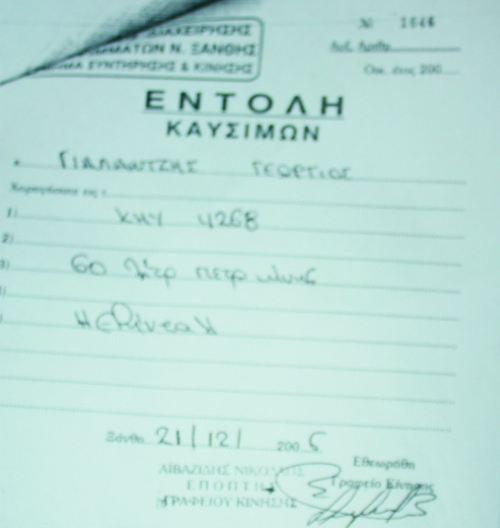 ΔΙΑΧΕΙΡΗΣΗΣ
ΜΑΤΩΝ Ν. ΞΑΝΘΗΣ
ΣΥΝΤΗΡΗΣΗΣ & ΚΙΝΗΣΗΣ
№ 1646
Αυξ. Αριθμ.
Οικ. έτος 200
ΕΝΤΟΛΗ
ΚΑΥΣΙΜΩΝ
ΓΙΑΛΑΝΤΖΗΣ ΓΕΩΡΓΙΟΣ
Χορηγήσατε εις :
1) ΚΗΥ 4268
2)
3) 60 λίτρ πετρ
Ξάνθη 21/12/ 2005
ΑΪΒΑΖΙΔΗΣ ΝΙΚΟΛΑΟΣ
ΕΠΟΠΤΗΣ
ΓΡΑΦΕΙΟΥ ΚΙΝΗΣΗΣ
Εθεωρήθη
Γραφείο Κίνησης